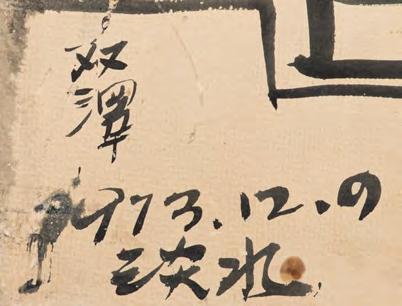 双澤
1973.12.9
淡水